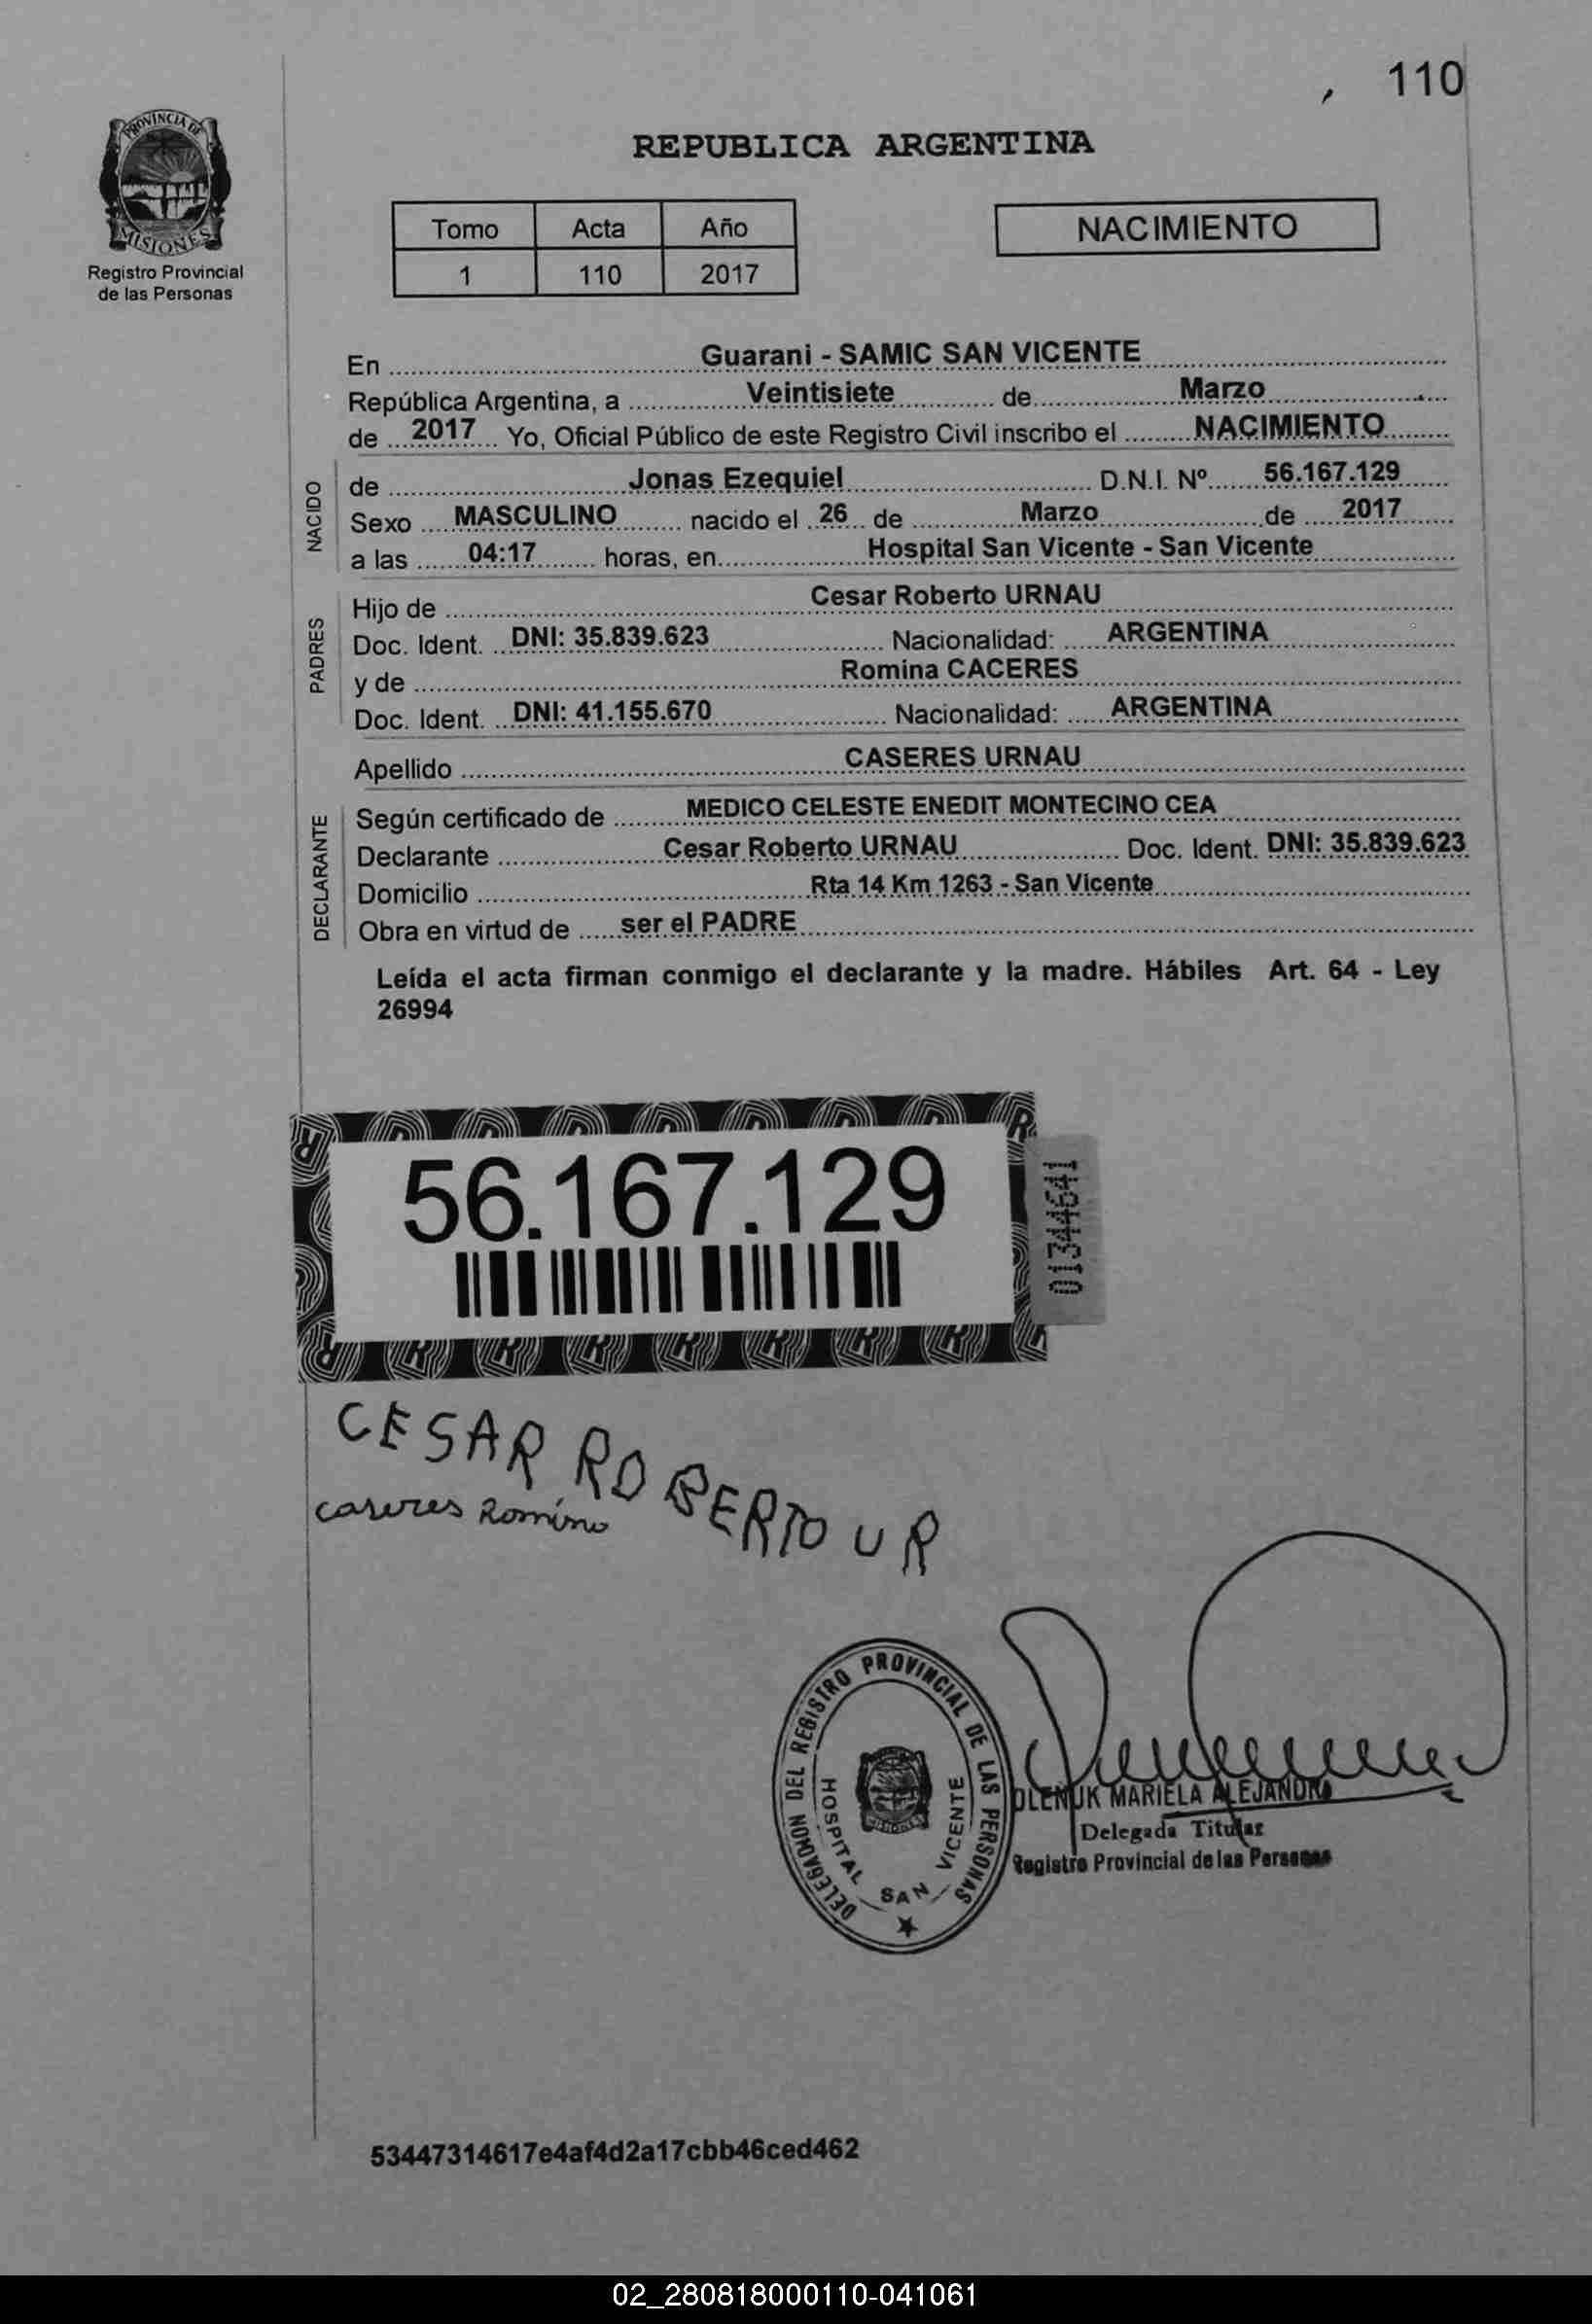 110
PROVINCIA DE
MISIONES
Registro Provincial
de las Personas
REPUBLICA ARGENTINA
Tomo Acta Año
1 110 2017
NACIMIENTO
En Guarani - SAMIC SAN VICENTE
República Argentina, a Veintisiete de Marzo
de 2017 Yo, Oficial Público de este Registro Civil inscribo el NACIMIENTO
NACIDO
de Jonas Ezequiel D.N.I. Nº 56.167.129
Sexo MASCULINO nacido el 26 de Marzo de 2017
a las 04:17 horas, en Hospital San Vicente - San Vicente
PADRES
Hijo de Cesar Roberto URNAU
Doc. Ident. DNI: 35.839.623 Nacionalidad: ARGENTINA
y de Romina CACERES
Doc. Ident. DNI: 41.155.670 Nacionalidad: ARGENTINA
Apellido CASERES URNAU
DECLARANTE
Según certificado de MEDICO CELESTE ENEDIT MONTECINO CEA
Declarante Cesar Roberto URNAU Doc. Ident. DNI: 35.839.623
Domicilio Rta 14 Km 1263 - San Vicente
Obra en virtud de ser el PADRE
Leída el acta firman conmigo el declarante y la madre. Hábiles Art. 64 - Ley
26994
56.167.129
01344641
CESAR ROBERTO UR
caseres Romina
DELEGACION DEL REGISTRO PROVINCIAL DE LAS PERSONAS
HOSPITAL SAN VICENTE
OLENUK MARIELA ALEJANDRA
Delegada Titular
Registro Provincial de las Personas
53447314617e4af4d2a17cbb46ced462
02_280818000110-041061